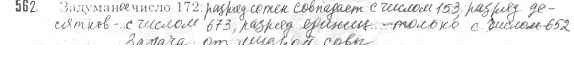 562 Задуманое число 172: разряд сотен совпадает с числом 153, разряд де-
сятков - с числом 673, разряд единиц - только с числом 652
Задача от умной совы